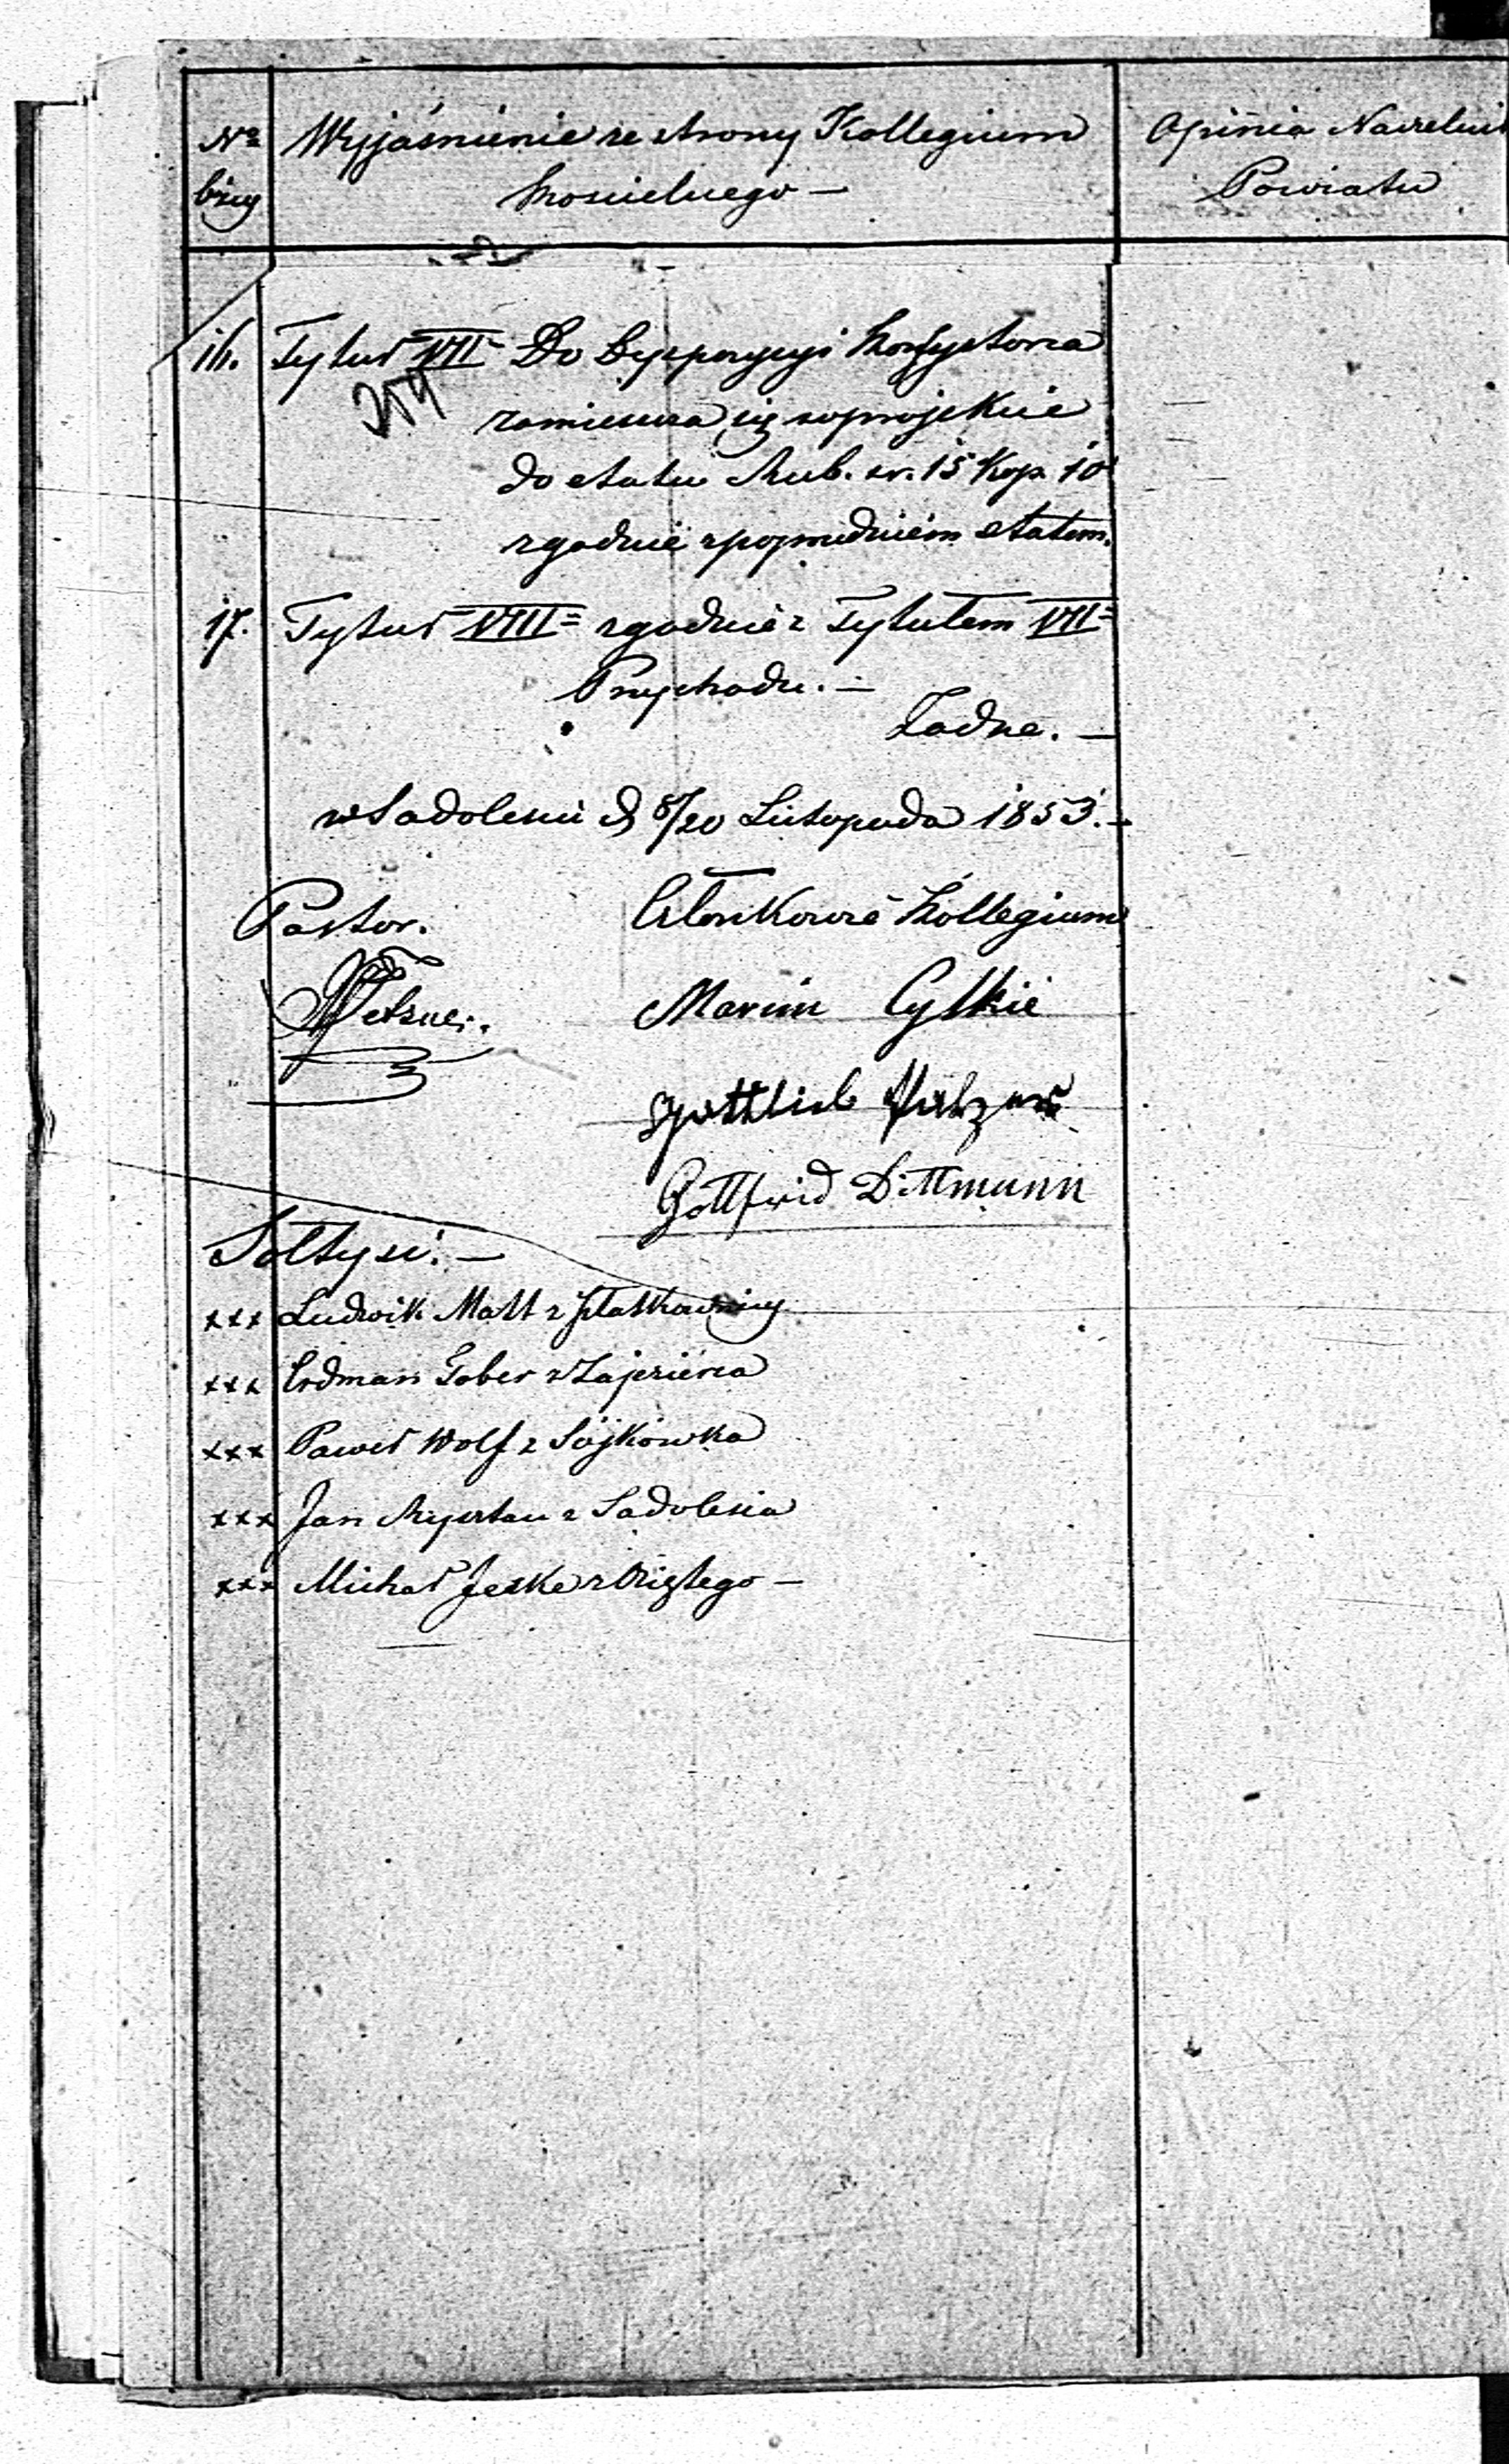 No
bżący
Wyjaśnienie ze strony Kollegium
Kościelnego —
Opinia Naczelni
Powiatu
16. Tytuł VII Do Dyspozycyi Konsystorza
204
zamieszcza się w projekcie
do etatu Rub. sr. 15 Kop. 10
zgodnie z poprzedniém etatem.
17. Tytuł VIII zgodnie z Tytułem VII
Przychodu. —
Żadne. —
w Sadoleśiu d 8/20 Listopada 1853. —
Pastor.
Członkowie Kollegium
Marcin Cylkie
Gottlieb
Gottfried Dittmann
Sołtysi. —
xxx Ludwik Matt z
xxx Erdman Gober z Zajezierza
xxx Paweł Wolf z Sójkówka
xxx Jan z Sadolesia
xxx Michał Jeske z